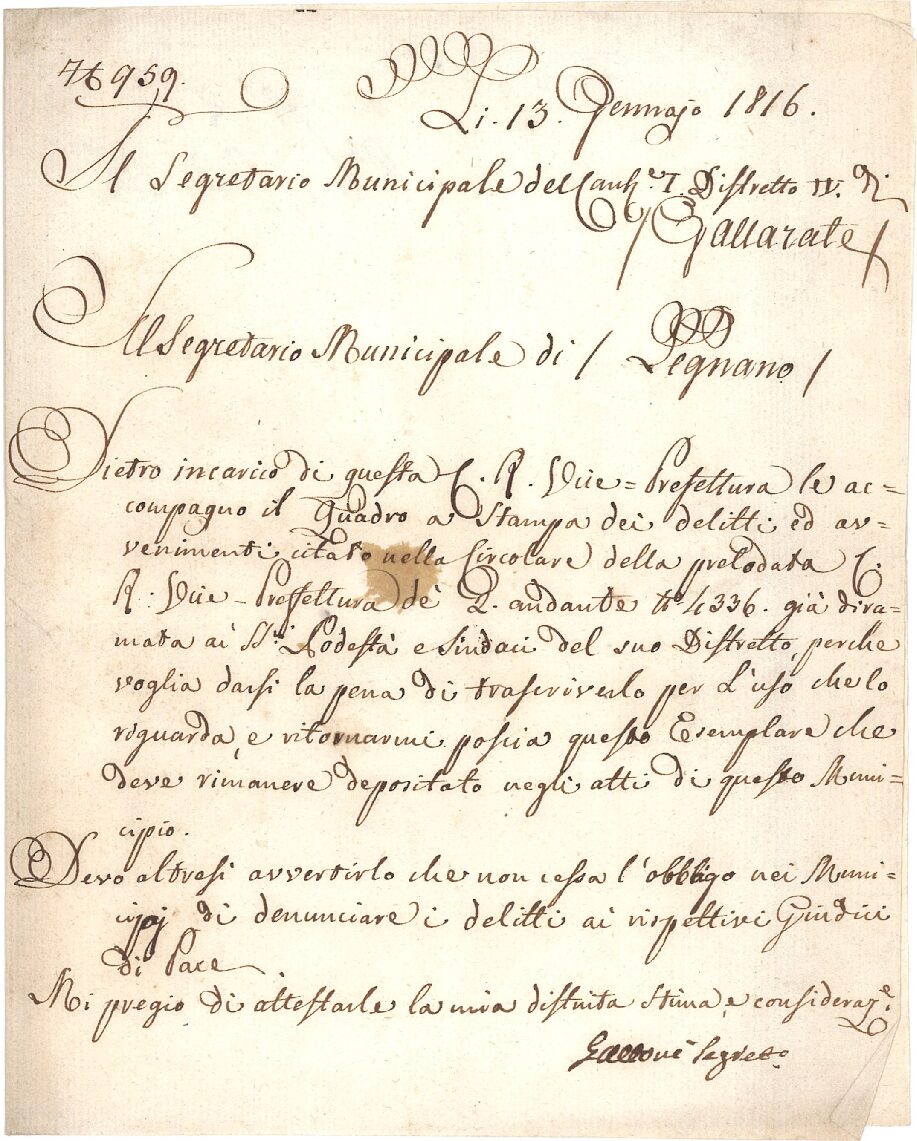 N° 959.
Li. 13. Gennajo 1816.
Il Segretario Municipale del Cant.e I. Distretto IV. di
/ Gallarate /
Al Segretario Municipale di / Legnano /
Dietro incarico di questa C. R. Vice=Prefettura le ac=
compagno il Quadro a Stampa dei delitti ed av=
venimenti citato nella Circolare della prelodata C.
R. Vice-Prefettura de' 2. andante N° 4336. già dira=
mata ai SS.ri Podestà e Sindaci del suo Distretto, perche
voglia darsi la pena di trascriverlo per l'uso che lo
riguarda, e ritornarmi poscia questo Esemplare che
deve rimanere depositato negli atti di questo Muni=
cipio.
Devo altresi avvertirlo che non cessa l'obbligo nei Muni=
cipj di denunciare i delitti ai rispettivi Giudici
di Pace
Mi pregio di attestarle la mia distinta stima, e consideraz.e
Segret.o